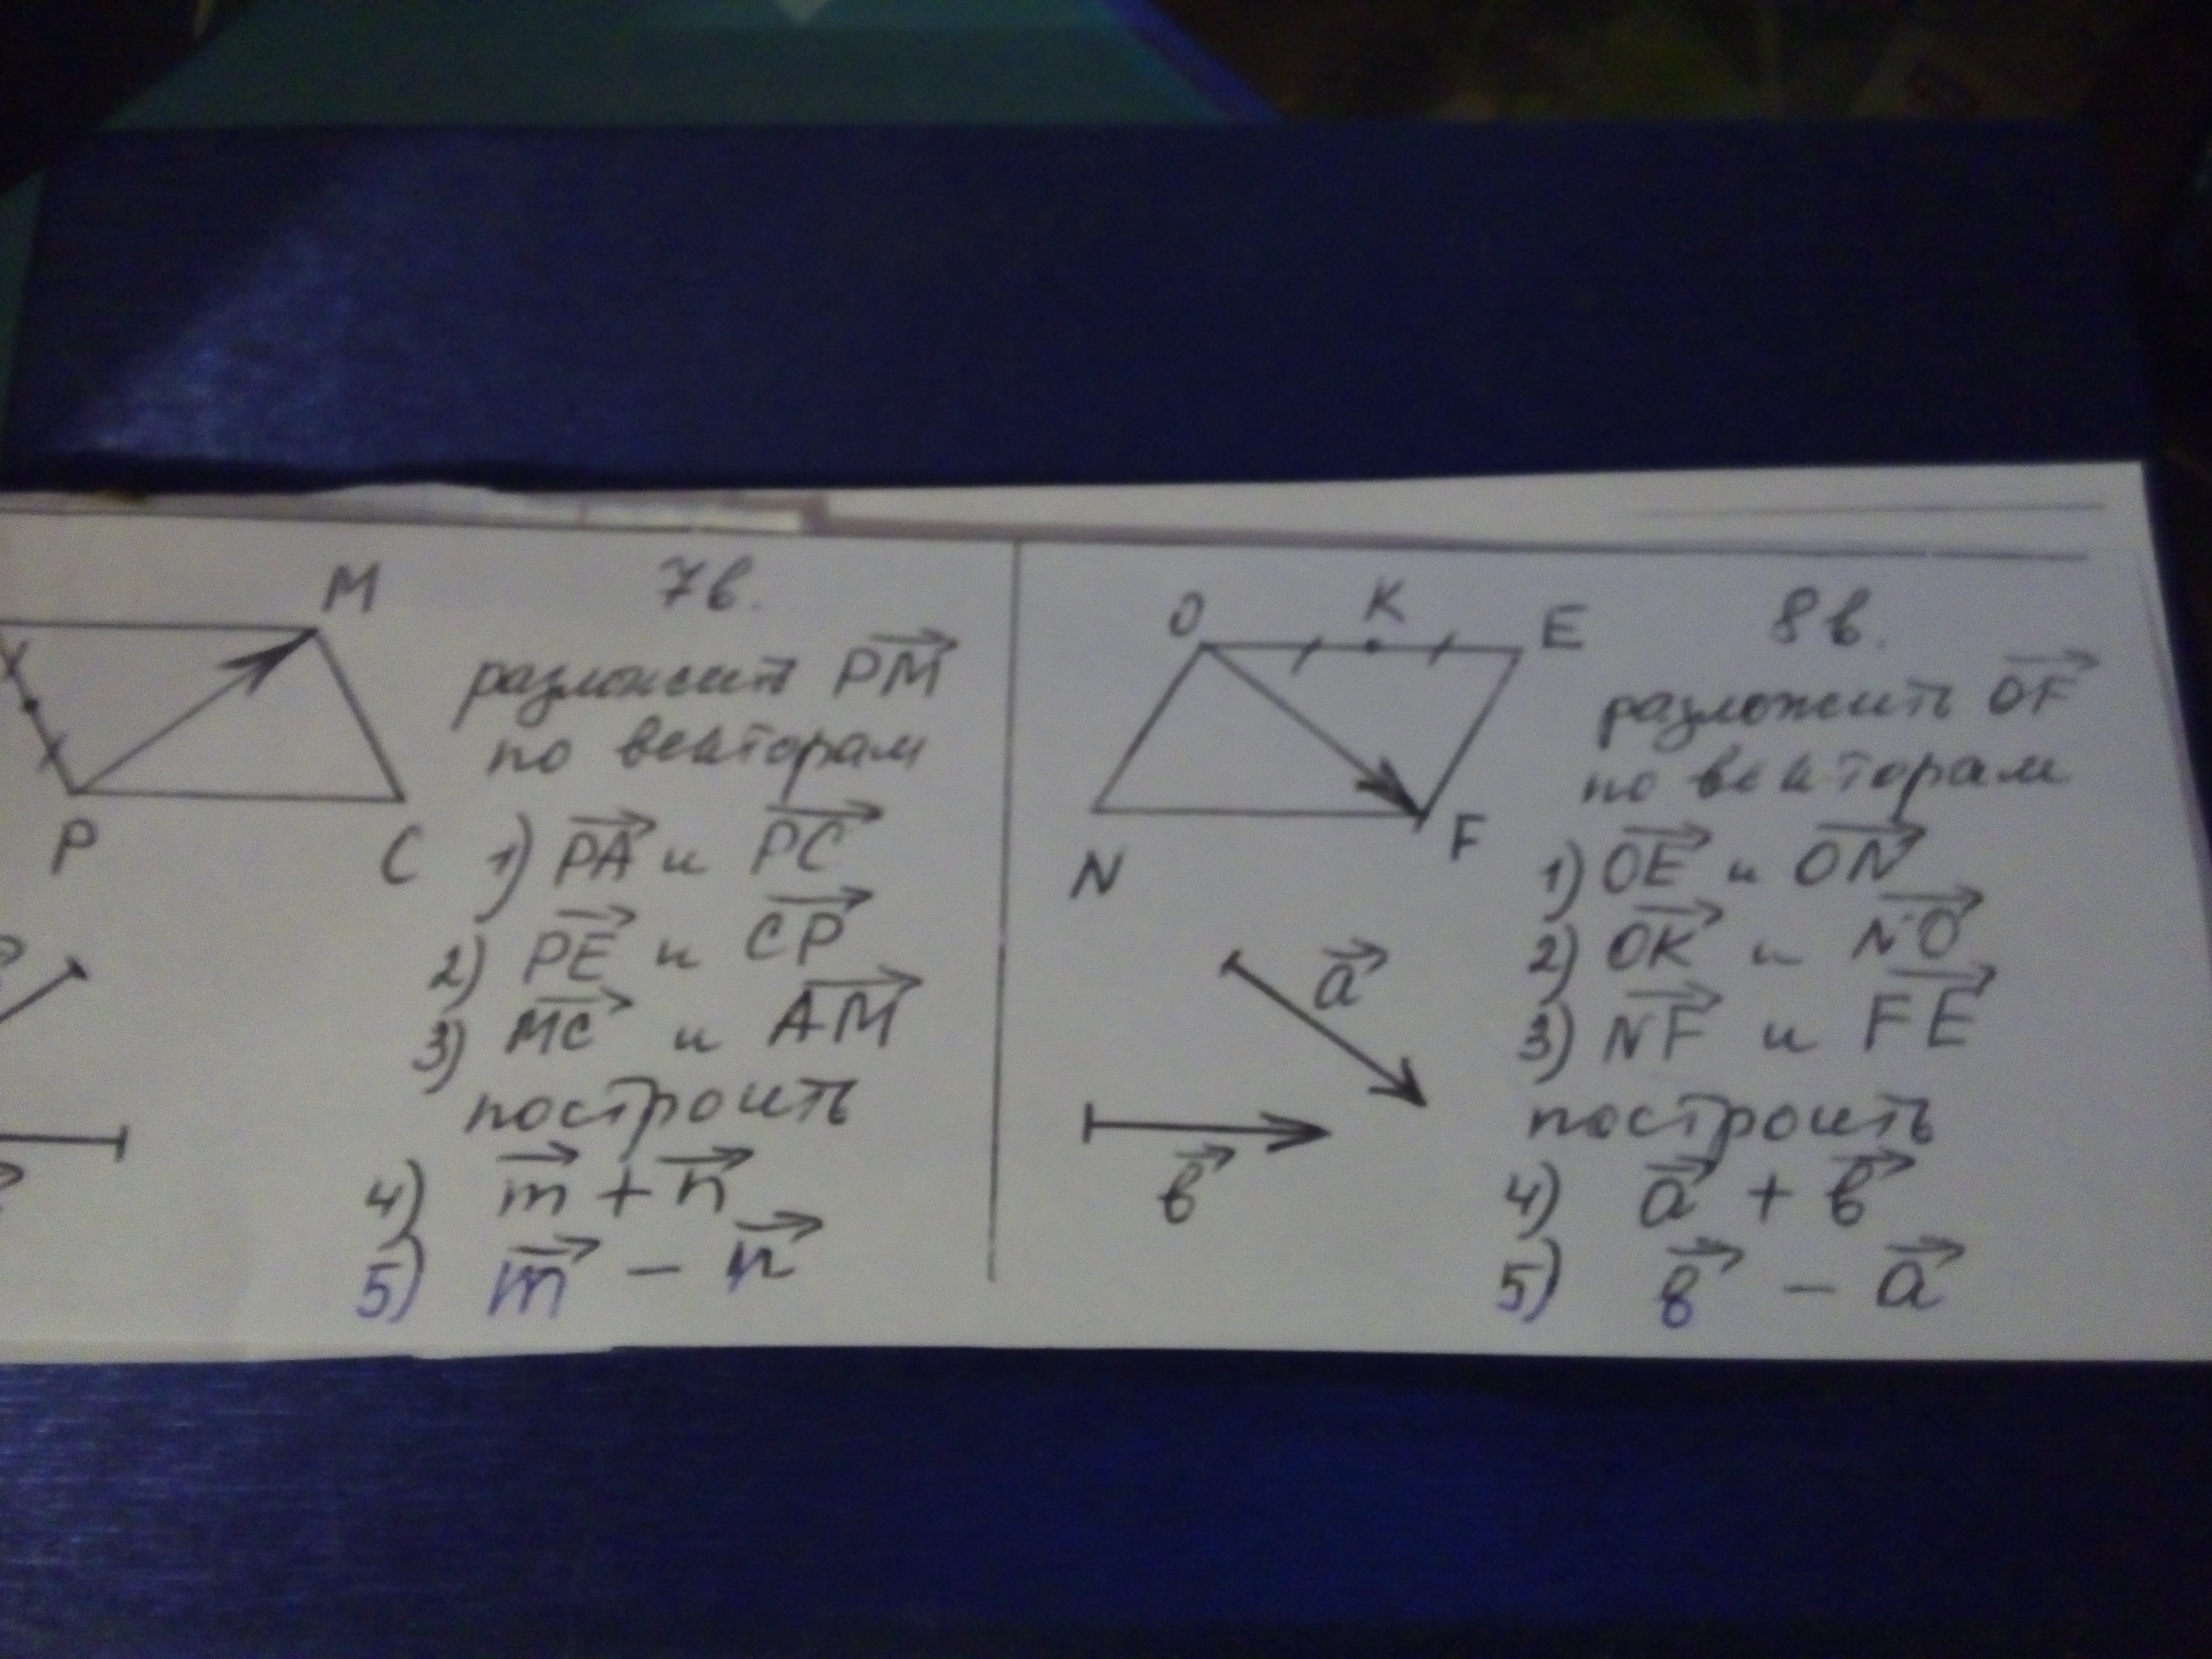 M
P
C
7в.
разложить PM
по векторам
1) PA и PC
2) PE и CP
3) MC и AM
построить
4) m + n
5) m – n
O
K
E
N
F
a
в
8в.
разложить OF
по векторам
1) OE и ON
2) OK и NO
3) NF и FE
построить
4) a + в
5) в – a